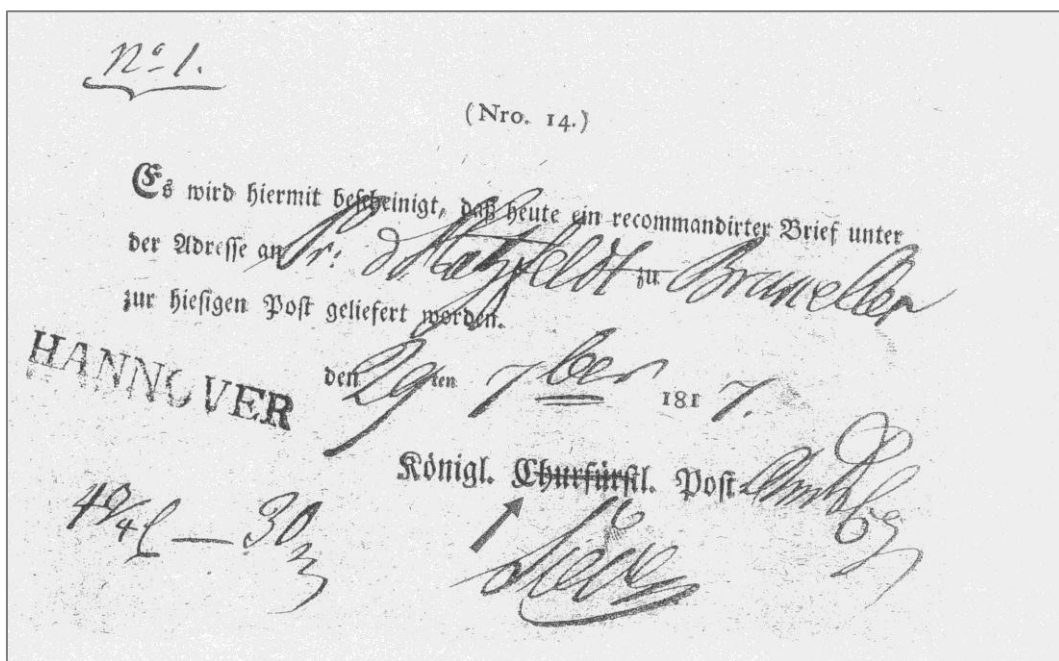 No 1.
(Nro. 14.)
Es wird hiermit bescheinigt, daß heute ein recommandirter Brief unter
der Adresse an Hatzfeldt zu
zur hiesigen Post geliefert worden.
HANNOVER
den 29ten 7ber 1817.
Königl. Churfürstl. Post
30